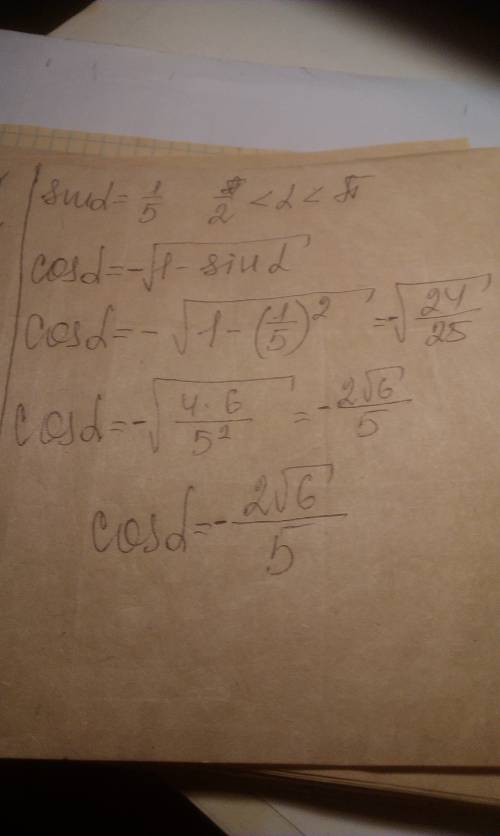 sinα = 1/5 π/2 < α < π
cosα = -√(1 - sin α)
cosα = - √(1 - (1/5)²) = -√(24/25)
cosα = -√(4·6/5²) = -2√6/5
cosα = - 2√6/5